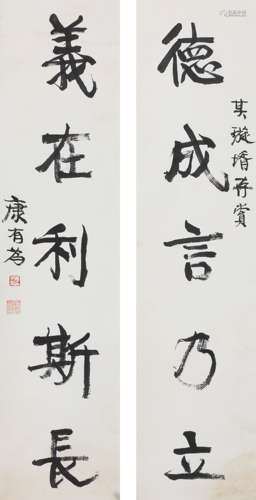 德成言乃立
其璇婿存賞
義在利斯長
康有為